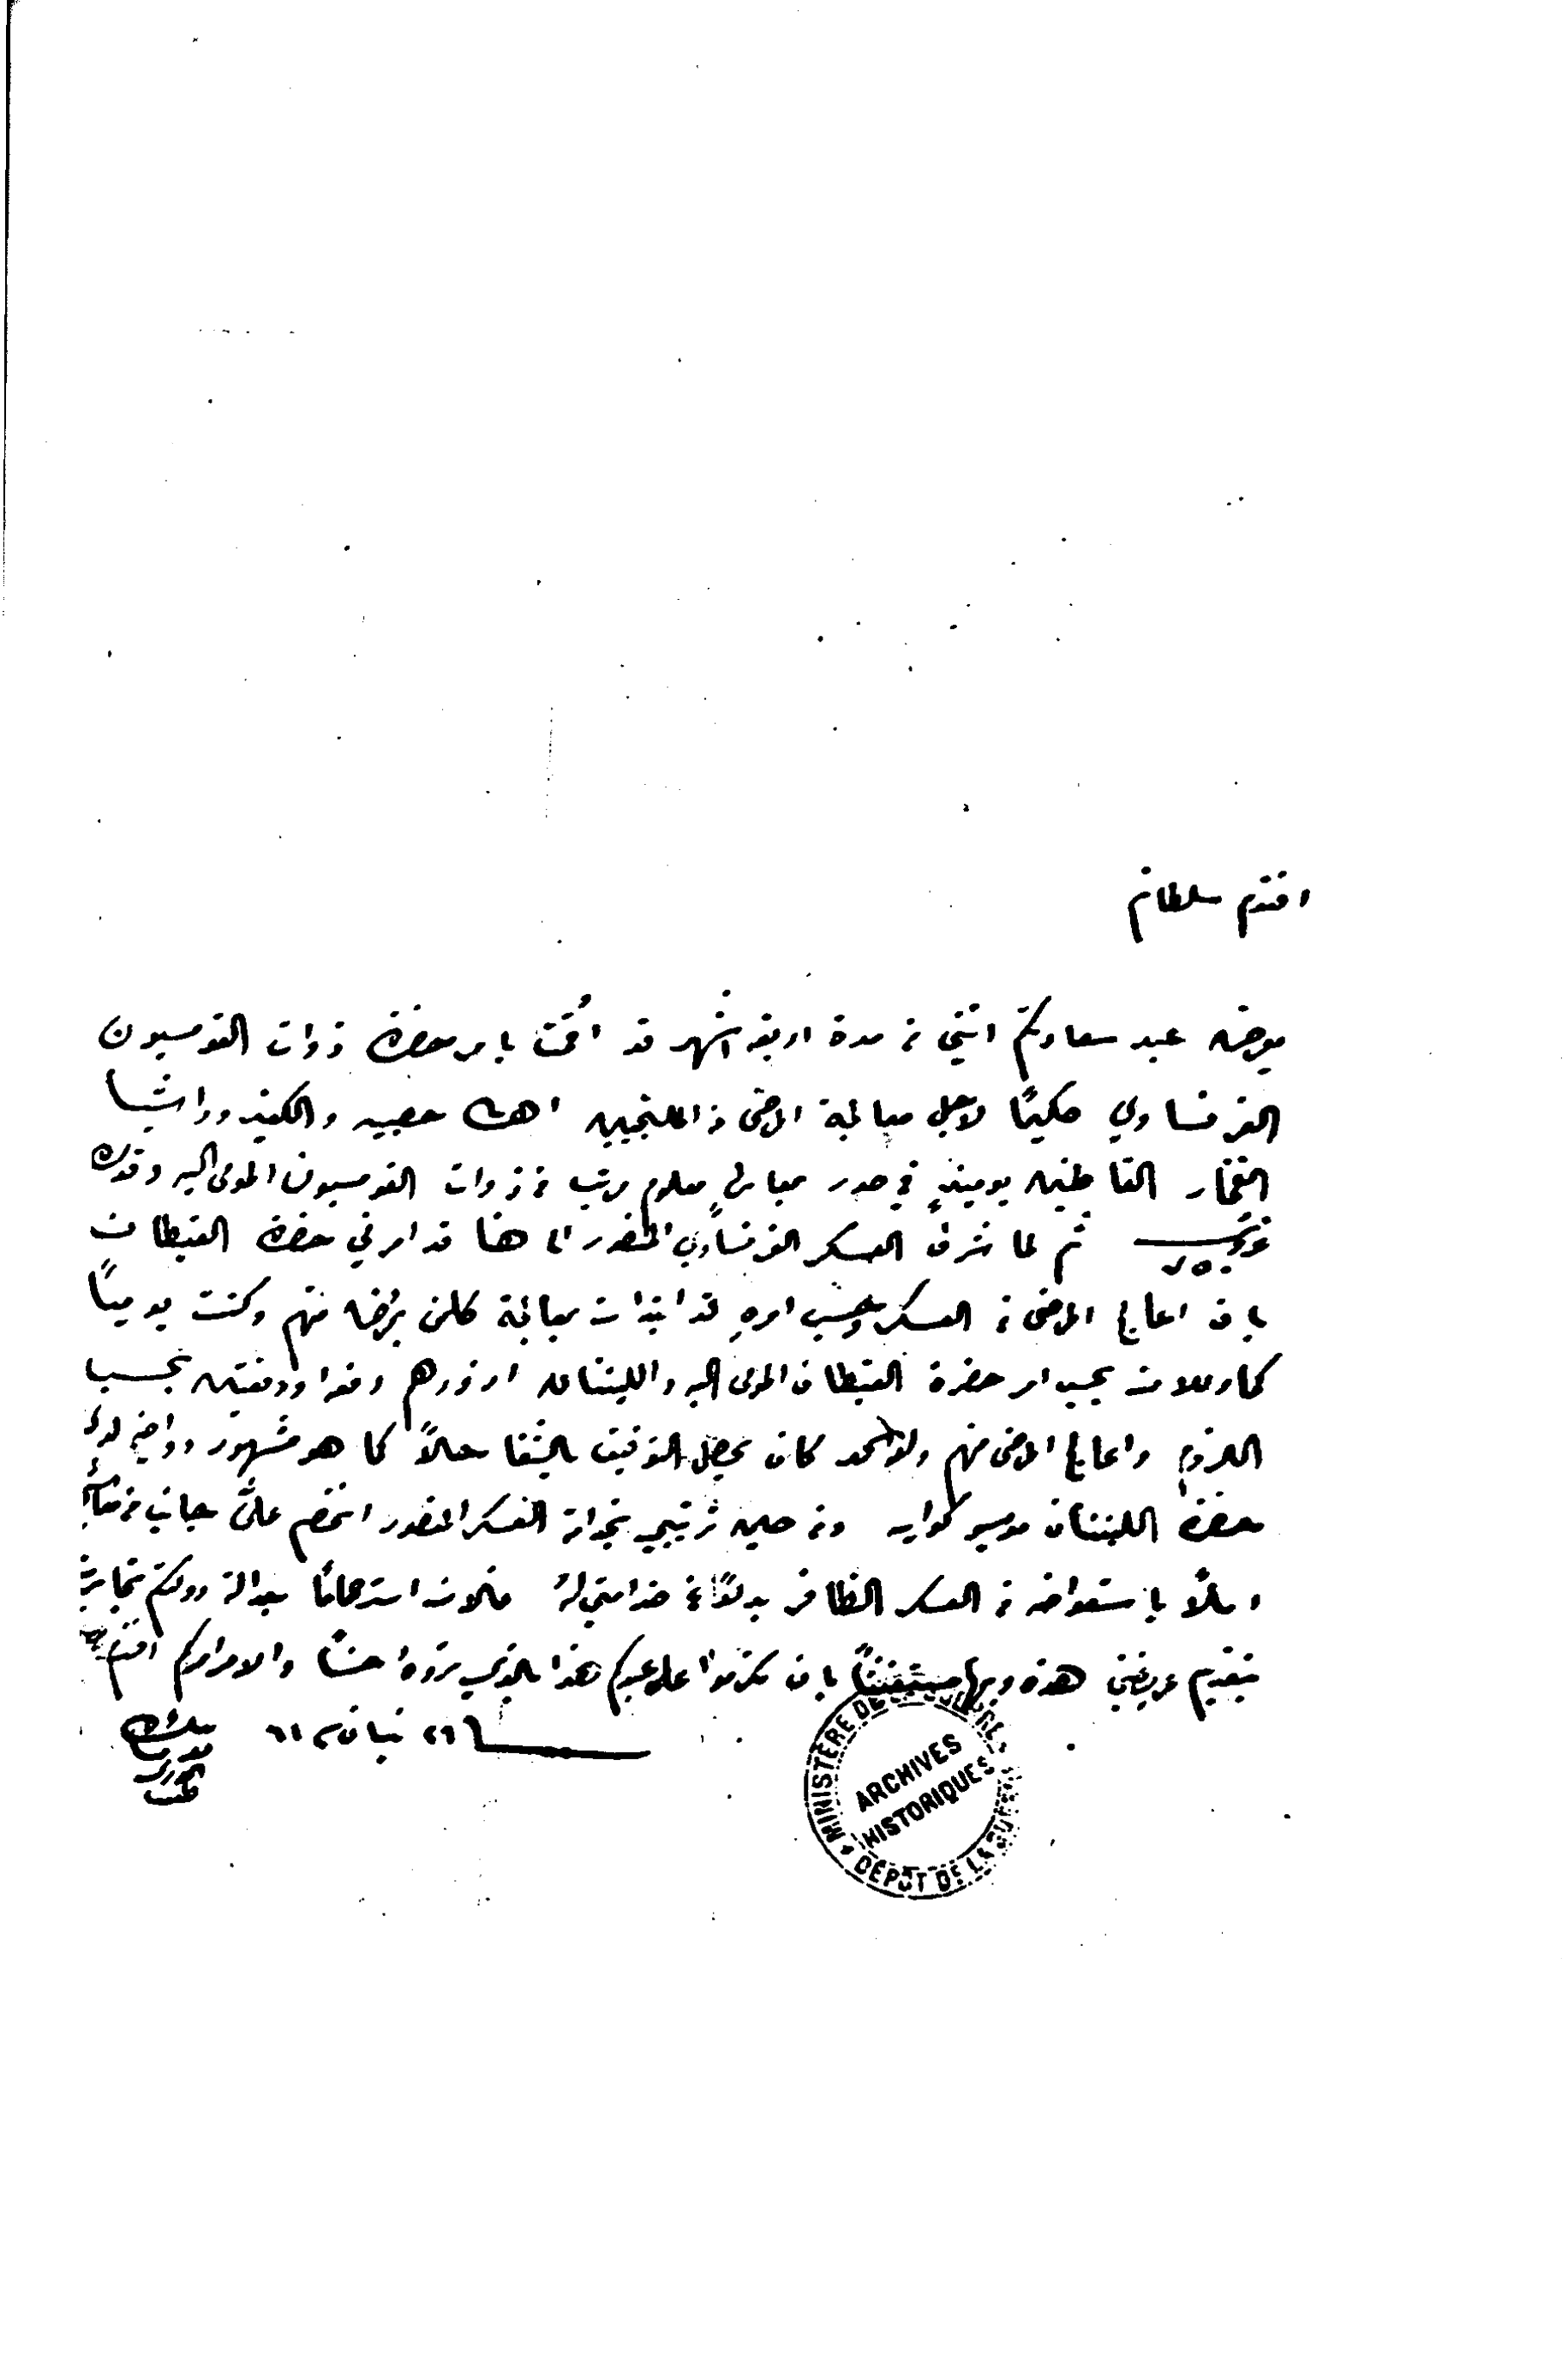 افندم سلطانم
يعرض عبد سعادتكم انني من مدة اربعة اشهر قد اقمت بامر حضرة ذوات القومسيون
الفرنساوي حكيمًا لاجل معالجة المرضى من الملتجيين اهالي حصبيه والكفير وراشيا
الفخار القاطنين يوميذٍ في صور بمعاشٍ معلوم مرتب من ذوات القومسيون المومى اليه وقدره
غرش ثم لما تشرف العسكر الفرنساوي المنصور الى هنا قد امرني حضرة القبطان
بان اعالج المرضى من العسكر وحسب امرهِ قد ابتدات بمعالجة كلمن يمرض منهم وكنت يوميًا
كما وللان بحسب امر حضرة القبطان المومى اليه والليتنان ازورهم دفعه ودفعتين بحسب
اللزوم واعالج المرضى منهم ولله الحمد كان يحصل التوفيق بالشفا حالاً كما هو مشهور وواضح لدى
حضرة الليتنان موسيو ومن حين ترتيبي بخدامة العسكر المنصور انخصم عليَّ جانب من معاشي
املاً باستعواضه من العسكر الظافر بدلاً عن خدامتي لهُ فالان استرحامًا بعدالة دولتكم تجاسرت
بتقديم عريضتي هذه وبها مستغيثًا بان تكرموا على عبدكم هذا بالذي تروهُ حسنًا والامر امركم افندم
٢٦ نيسان ٦١
بنده
الخوري
MINISTÈRE DE LA GUERRE
ARCHIVES
HISTORIQUES
DÉPÔT DE LA GUERRE